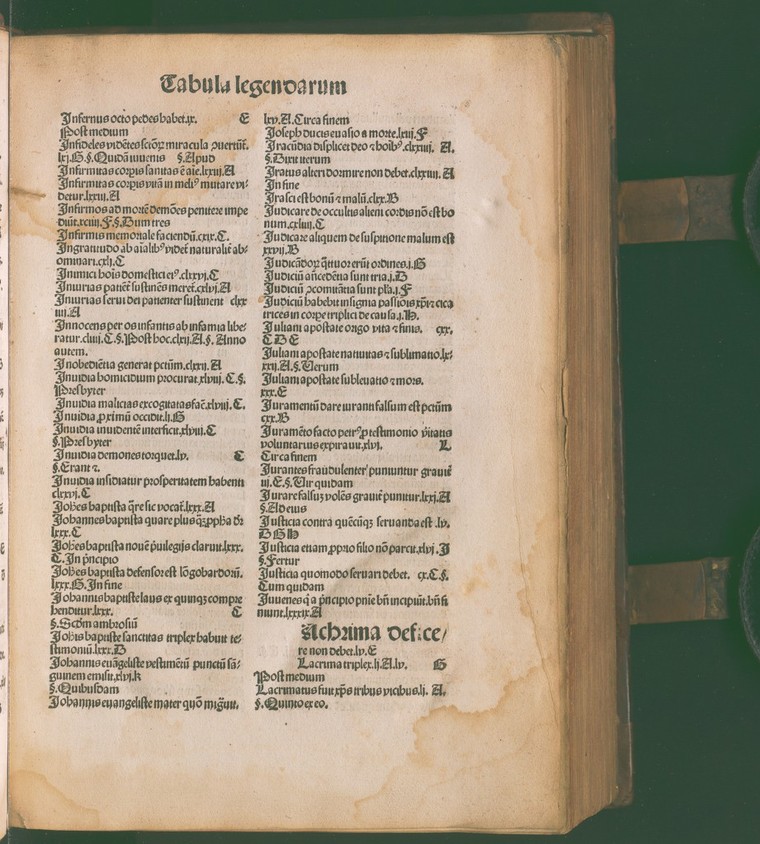 Tabula legendarum
Infernus octo pedes habet.ix. E
Post medium
Infideles vidētes sctōꝝ miracula ↄuertūt.
lxj.G.§.Quidā iuuenis §.Apud
Infirmitas corꝑis sanitas ē aīe.lxxij.A
Infirmitas corꝑis vitā in meliꝰ mutare vi/
detur.lxxij.A
Infirmos ad mortē demōes penitere impe
diūt.xciij.F.§.Dum tres
Infirmis memoriale faciendū.cxix.C.
Ingratitudo ab aīalibꝰ videt naturalit̄ ab/
ominari.cxlj.C
Inimici hoīs domestici eiꝰ.clxxvj.C
Iniurias patiēt̄ sustinēs meret̄.cxlvj.A
Iniurias serui dei patienter sustinent clxx
iiij.A
Innocens per os infantis ab infamia libe/
ratur.cliiij.C.§.Post hoc.clxij.A.§. Anno
autem.
Inobediētia generat pctūm.clxxij.A
Inuidia homicidium procurat.xlviij.C.§.
Presbyter
Inuidia malicias excogitatas fac̄.xlviij.C.
Inuidia ꝓximū occidit.lj.G
Inuidia inuidentē interficit.xlviij.C
§.Presbyter
Inuidia demones torquet.lv. C
§.Erant ⁊.
Inuidia insidiatur prosperitatem habenti
clxxvj.C
Johēs baptista q̄re sic vocat̄.lxxx.A
Johannes baptista quare plusq̄ꝫ ꝓpha dr̄
lxxx.C
Johēs baptista nouē p̄uilegijs claruit.lxxx.
C.In pncipio
Johēs baptista defensor est lōgobardorū.
lxxx.G.In fine
Johannis baptiste laus ex quinqꝫ compre
henditur.lxxx. C
§.Scdm ambrosiū
Johis baptiste sanctitas triplex habuit te/
stimoniū.lxxx.B
Johannis euāgeliste vestimētū punctū sā/
guinem emisit.xlvj.k
§.Quibusdam
Johannis euangeliste mater quō migūit.
lxv.A.Circa finem
Joseph ducis euasio a morte.lxiij.F
Iracūdia displicet deo ⁊ hoībꝰ.clxxiij. A.
§.Dixit iterum
Iratus alteri dormire non debet.clxxiij.A
In fine
Irasci est bonū ⁊ malū.clxx.B
Iudicare de occultis alieni cordis nō est bo
num.cxliiij.C
Iudicare aliquem de suspitione malum est
xxvij.B
Iudicādoꝝ q̄ttuor erūt ordines.j.G
Iudiciū an̄cedētia sunt tria.j.B
Iudiciū ↄcomitātia sunt pl̄a.j.F
Iudiciū habebit insignia passiōis xp̄i ⁊ cica
trices in corpe triplici de causa.j.H.
Juliani apostate origo vita ⁊ finis. cxx.
C D E
Juliani apostate natiuitas ⁊ sublimatio.lx/
xxij.A.§.Verum
Juliani apostate subleuatio ⁊ mors.
xxx.E
Iuramentū dare iuranti falsum est pctūm
cxx.B
Iuramēto facto petrꝰ ꝓ testimonio v̄itatis
voluntarius expirauit.xlvj. L
Circa finem
Iurantes fraudulenter puniuntur grauit̄
iij.E.§.Vir quidam
Iurare falsuꝫ volēs grauit̄ punitur.lxxj.A
§.Ad eius
Justicia contra quēcūqꝫ seruanda est .lv.
B G H
Justicia etiam ꝓprio filio nō parcit.xlvj.J
§.Fertur
Justicia quomodo seruari debet. cx.C.§.
Cum quidam
Juuenes q̄ a pncipio pnie bn̄ incipiūt.bn̄ fi
niunt.lxxxix.A
Lachrima defice/
re non debet.lv.E
Lacrima triplex.lj.A.lv. G
Post medium
Lacrimatus fuit xp̄s tribus vicibus.lj. A.
§.Quinto ex eo.